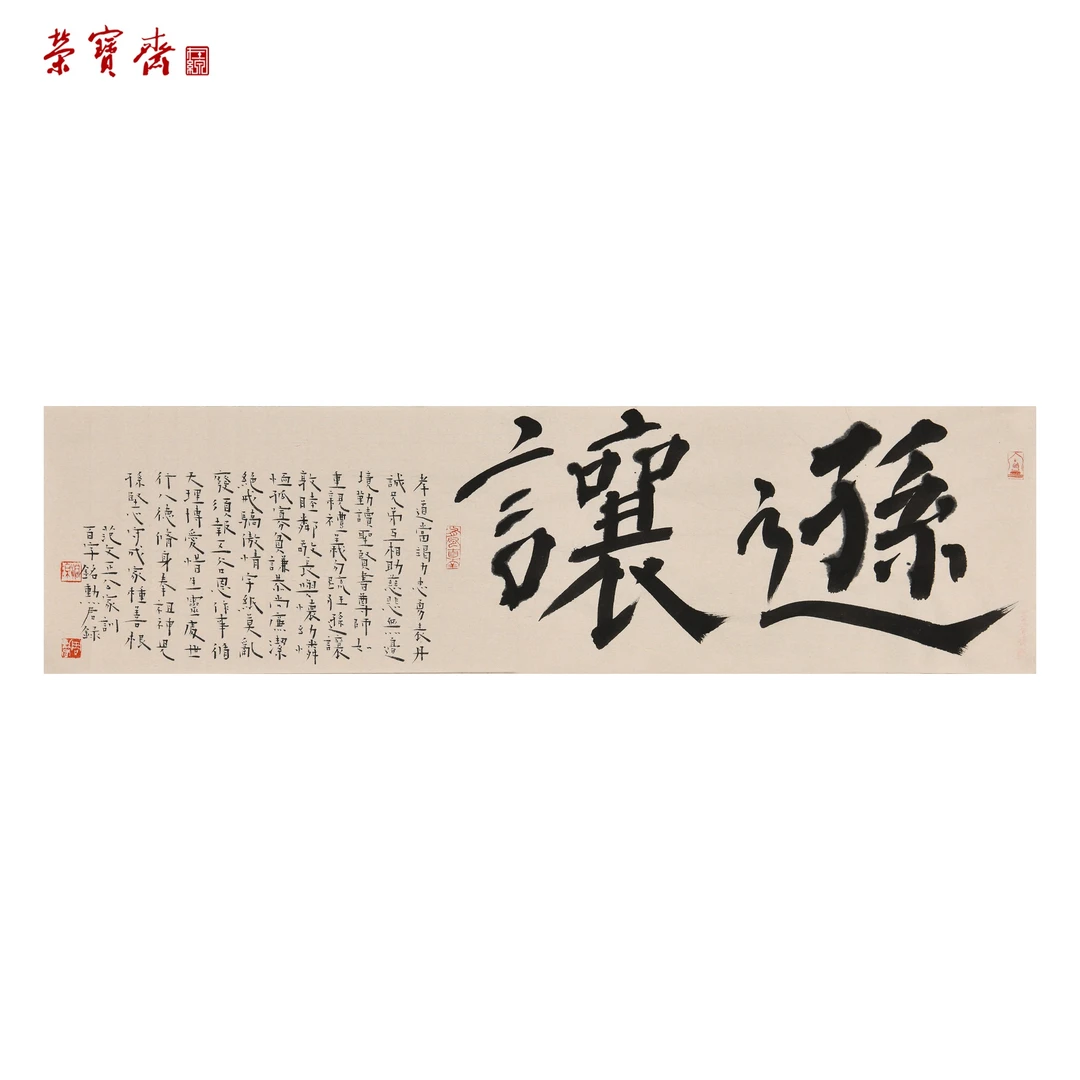 榮寶齋
遜讓
孝道當竭力忠勇表丹
誠兄弟互相助慈悲無邊
境勤讀聖賢書尊師如
重親禮義勿疏狂遜讓
敦睦鄰敬長與懷幼憐
恤孤寡貧謙恭尚廉潔
絕戒驕傲情字紙莫亂
廢須報五谷恩作事循
天理博愛惜生靈處世
行八德脩身奉祖神兒
孫堅心守成家種善根
范文正公家訓
百字銘勳居錄